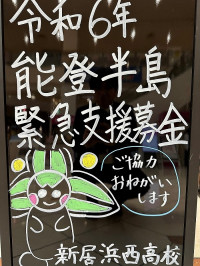 令和6年
能登半島
緊急支援募金
ご協力
おねがい
します
新居浜西高校